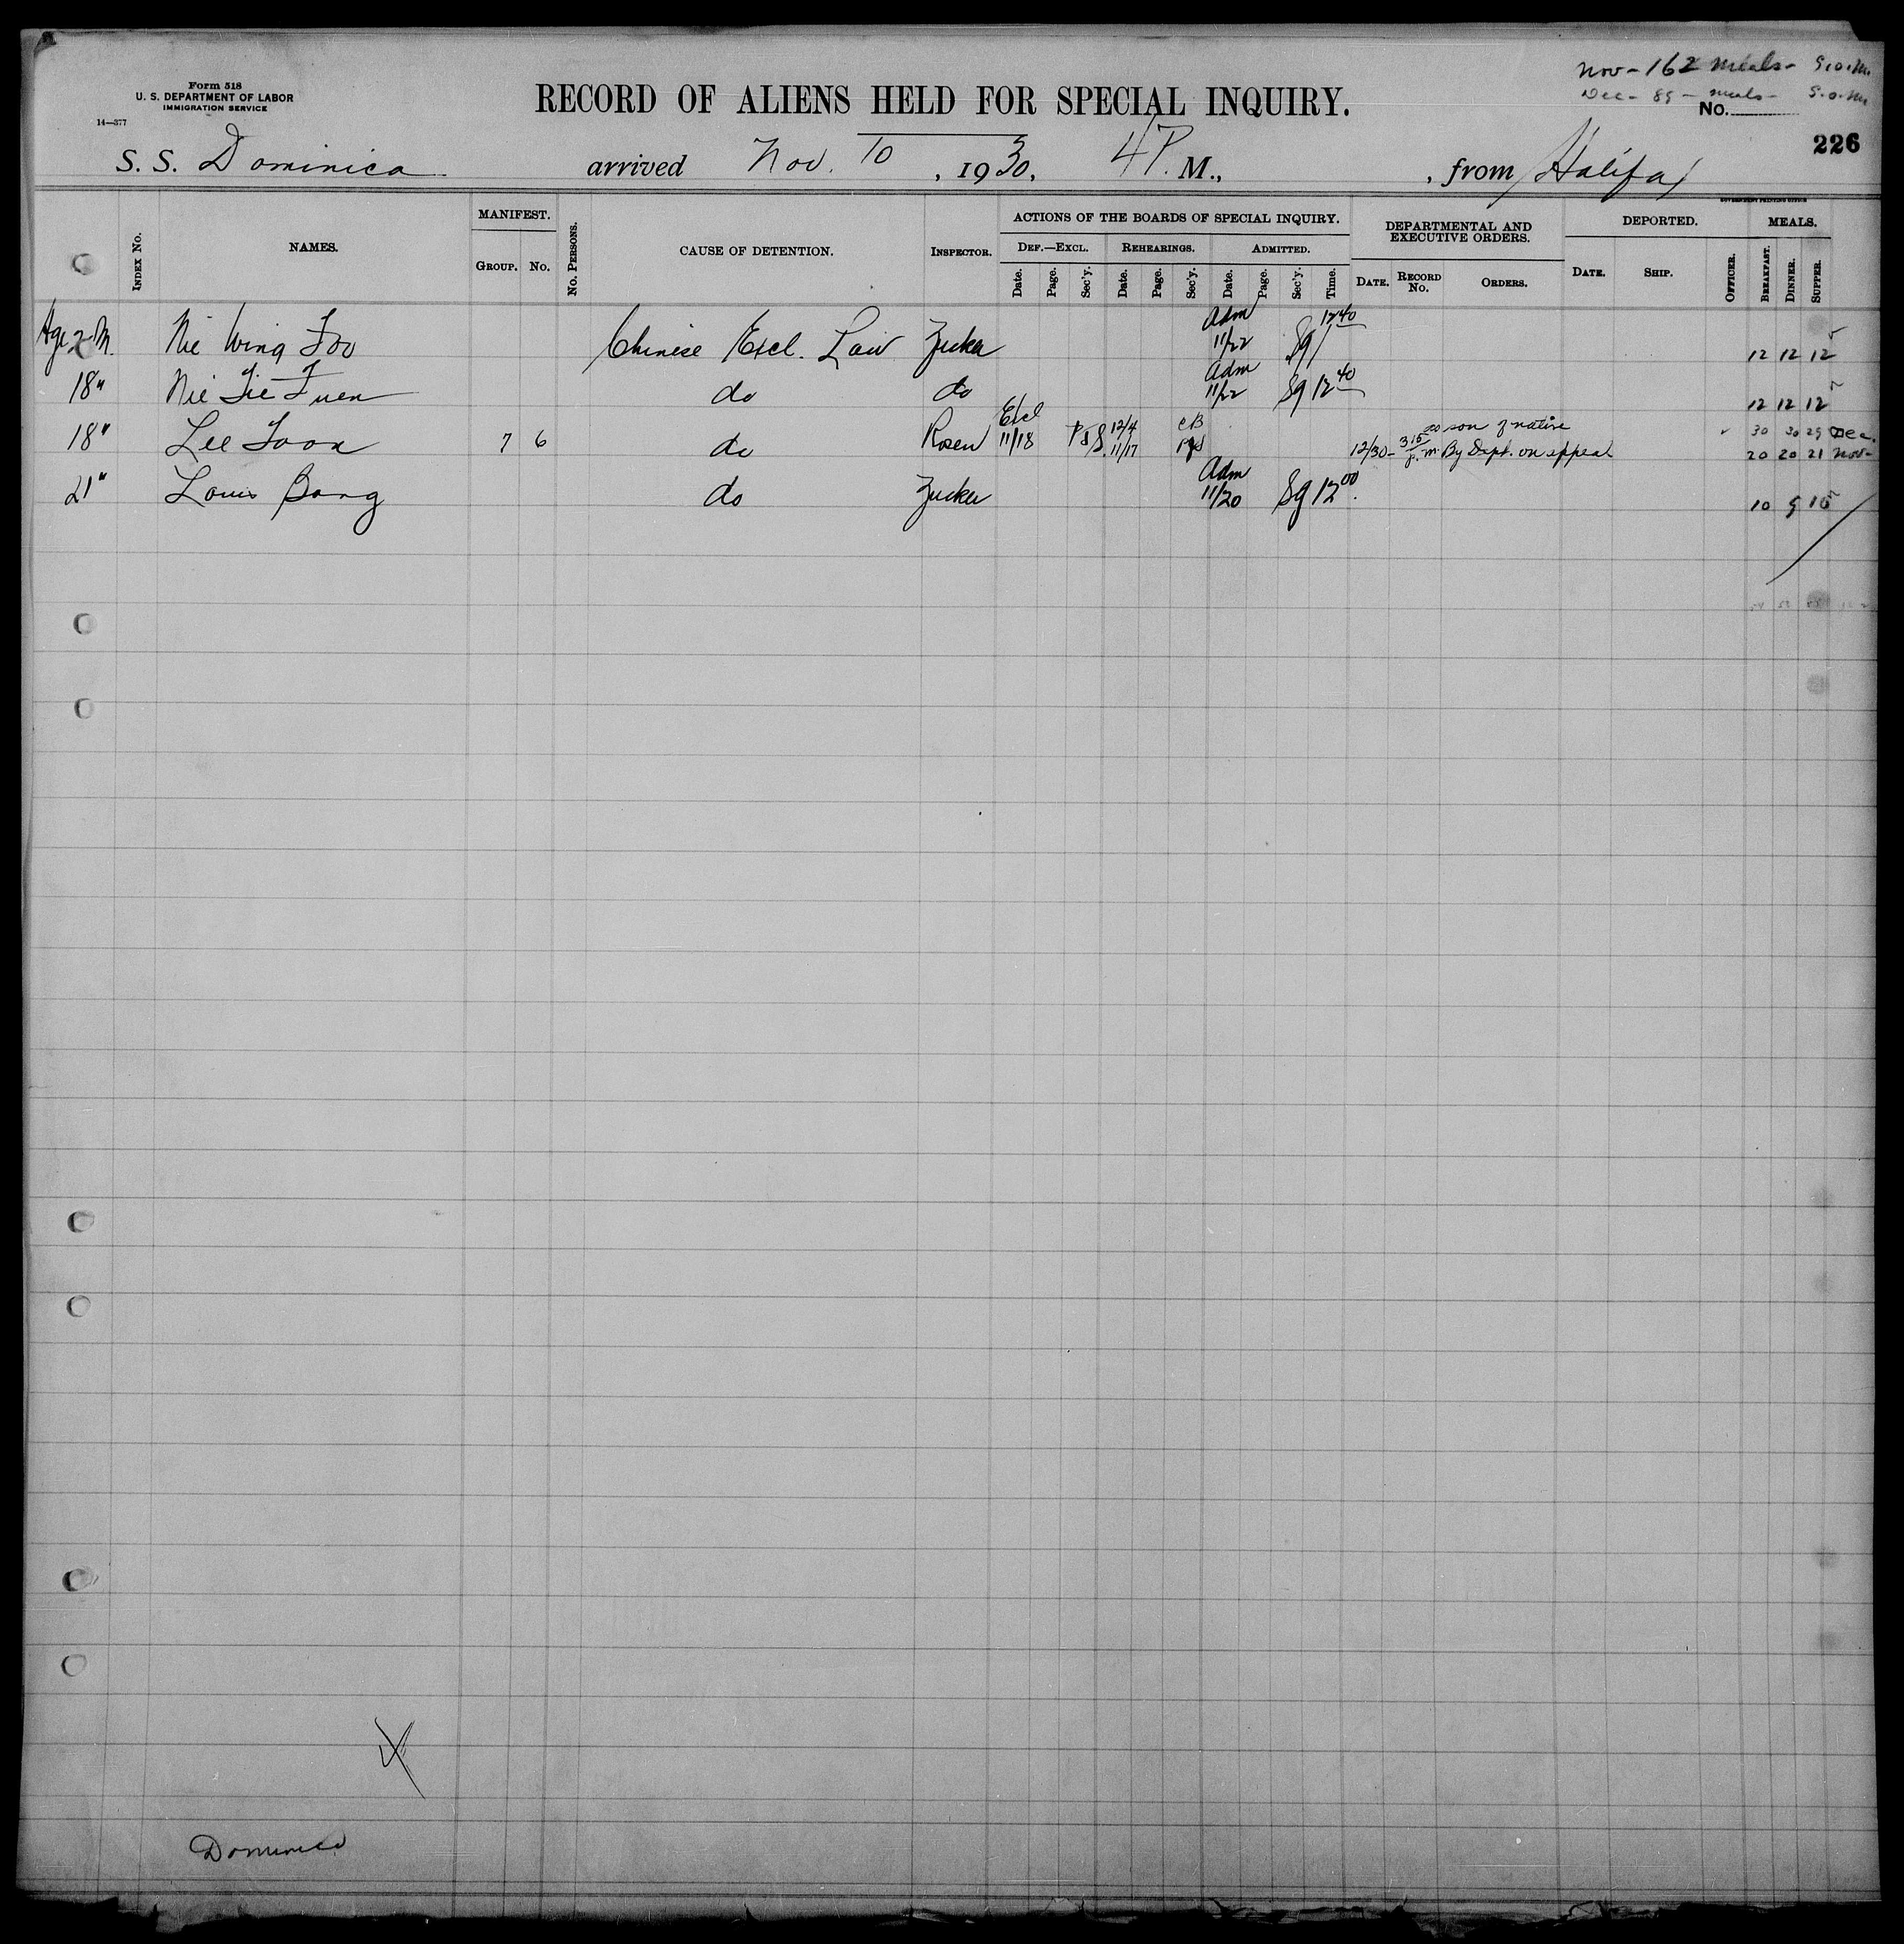 Nov - 162 Meals - S.O.M.
Dec - 89 - meals - S.O.M.
Form 518
U. S. DEPARTMENT OF LABOR
IMMIGRATION SERVICE
14—377
RECORD OF ALIENS HELD FOR SPECIAL INQUIRY.
No.
226
S. S. Dominica arrived Nov. 10, 1930, 4 P. M., from Halifax
GOVERNMENT PRINTING OFFICE
INDEX NO. NAMES. MANIFEST. GROUP. NO. NO. PERSONS. CAUSE OF DETENTION. INSPECTOR. ACTIONS OF THE BOARDS OF SPECIAL INQUIRY. DEF.—EXCL. Date. Page. Sec'y. REHEARINGS. Date. Page. Sec'y. ADMITTED. Date. Page. Sec'y. Time. DEPARTMENTAL AND EXECUTIVE ORDERS. DATE. RECORD NO. ORDERS. DEPORTED. DATE. SHIP. OFFICER. MEALS. BREAKFAST. DINNER. SUPPER.
Age M. Nie Wing Foo Chinese Excl. Law Zucker Adm 11/22 Sg 12 40 12 12 12
18" Nie Tie Fuen do do Adm 11/22 Sg 12 40 12 12 12
18" Lee Toon 7 6 do Rosen Excl 11/18 12/4 11/17 CB 12/30 - 3 15 p.m. as son of native By Dept. on appeal 30 30 29 Dec.
20 20 21 Nov -
21" Louis Bong do Zucker Adm 11/20 Sg 12 00 10 9 10
Dominica